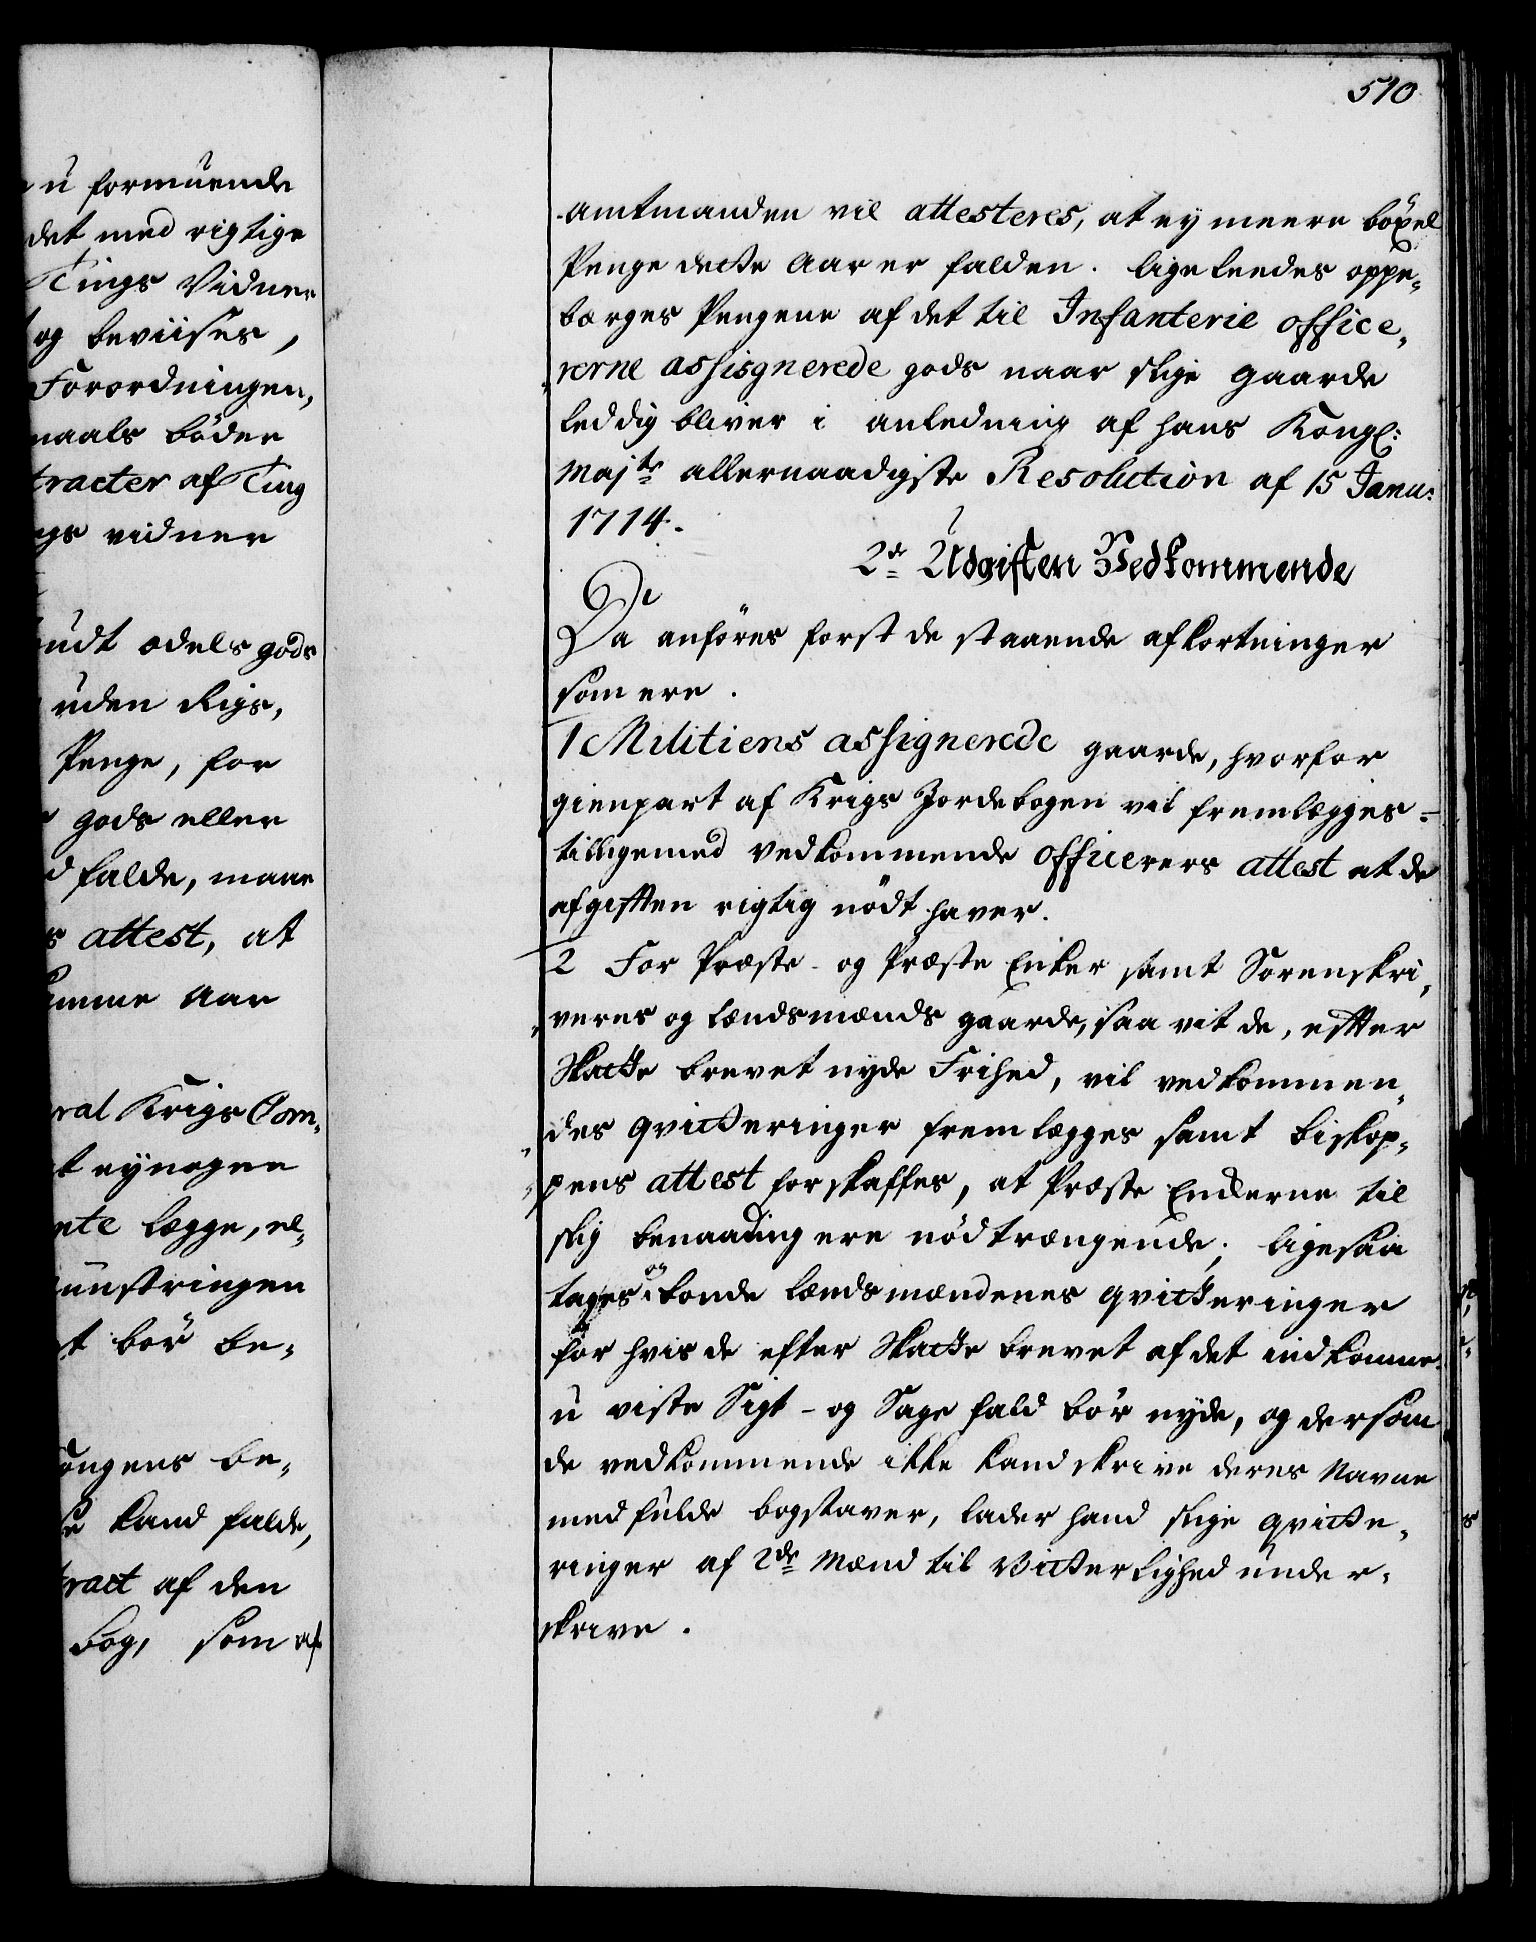 u formuende
det med rigtige
Tings Vidner
og beviises,
Forordningen,
maals bøder
tracter af Ting
ngs vidner
budt odels gods
uden Rigs,
Penge, for
gods eller
d falde, maae
s attest, at
amme Aar
ral Krigs Com,
t ey nogen
nte lægge, el,
unstringen
t bør be,
Kongens be,
se kand falde,
tract af den
bog, som af
510
Amtmanden vil attesteres, at ey meere böxel
Penge dette Aar er falden. ligeleedes oppe,
bærges Pengene af det til Infanterie office,
rerne assisgnerede gods naar slige gaarde
leddig bliver i anledning af hans Kongl:
Majts allernaadigste Resolution af 15 Janu:
1714.
2de Udgiften Vedkommende
Da anföres forst de staaende afkortninger
som ere.
1 Militiens assignerede gaarde, hvorfor
gienpart af Krigs Jordebogen vil fremlægges
tilligemed vedkommende officerers attest at de
afgiften rigtig nödt haver.
2 For Præste- og Præste Enker samt Sorenskri,
veres og lændsmænds gaarde, saa vit de, efter
Skatte brevet nyde Frihed, vil vedkommen,
des qvitteringer fremlægges samt biskop,
pens attest forskaffes, at Præste Enckerne til
slig benaading ere nödtrængende; ligesaa
tages og bonde lændsmændenes qvitteringer
for hvis de efter Skatte brevet af det indkomne
u viste Sigt- og Sage fald bör nyde, og dersom
de vedkommende ikke kand skrive deres Navne
med fulde bogstaver, lader hand slige qvitte,
ringer af 2de Mænd til Vitterlighed under,
skrive.